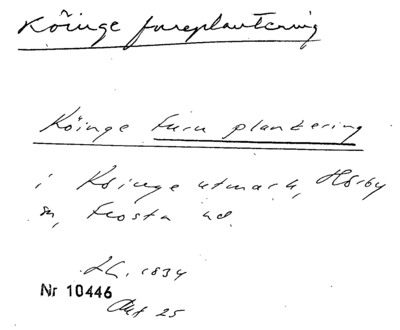 Köinge fureplantering
Köinge Furu plantering
i Köinge utmark, Hörby
sn, Frosta hd.
1834
Nr 10446
Akt 25